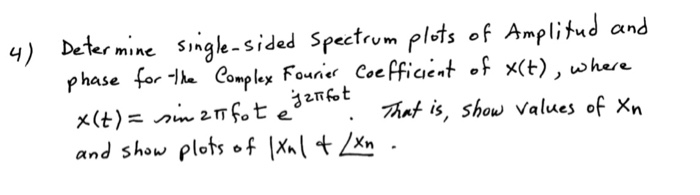 4) Determine single-sided Spectrum plots of Amplitud and
phase for the Complex Fourier Coefficient of x(t), where
x(t) = sin 2πf₀t e^{j2πf₀t}. That is, show values of Xn
and show plots of |Xn| + ∠Xn.